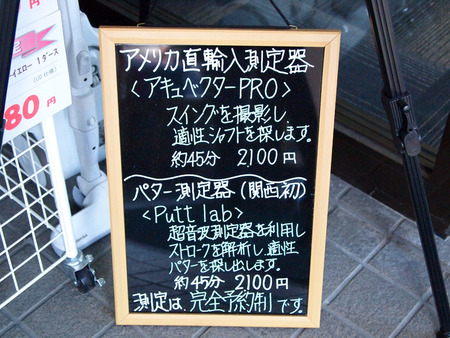 円
イエロー 1ダース
80円
アメリカ直輸入測定器
<アキュベクターPRO>
スイングを撮影し、
適性シャフトを探します。
約45分 2100円
パター測定器(関西初)
<Putt lab>
超音波測定器を利用し
ストロークを解析し、適性
パターを探し出します。
約45分 2100円
測定は、完全予約制です。